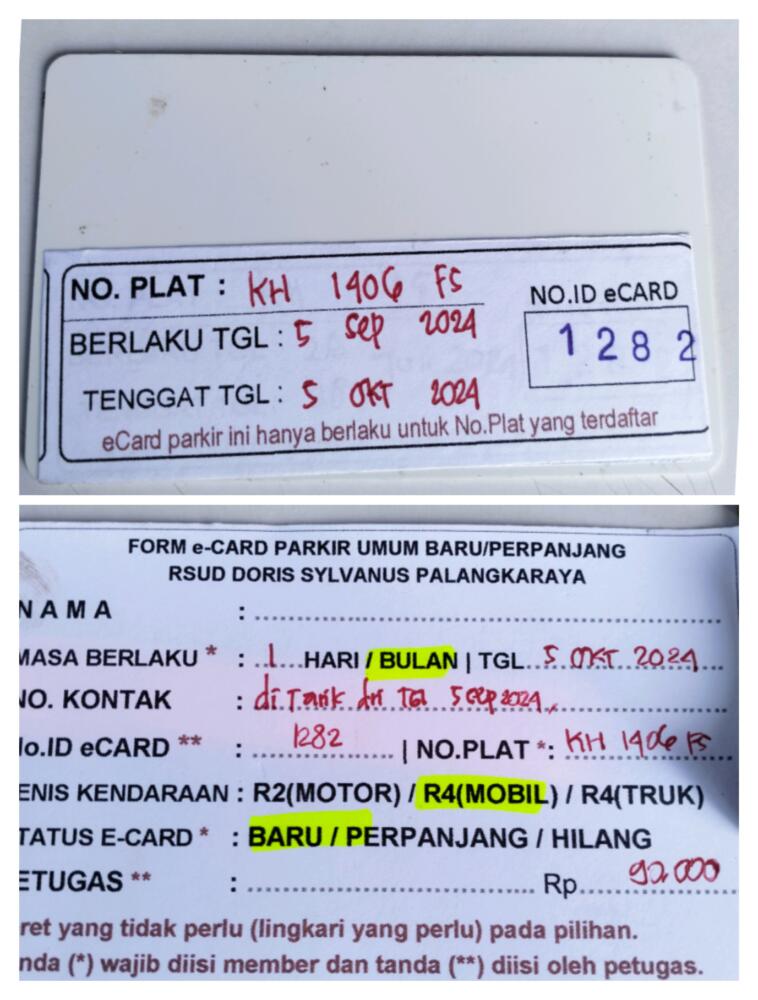 NO. PLAT : KH 1406 FS
NO.ID eCARD
BERLAKU TGL : 5 Sep 2024
1282
TENGGAT TGL : 5 OKT 2024
eCard parkir ini hanya berlaku untuk No.Plat yang terdaftar
FORM e-CARD PARKIR UMUM BARU/PERPANJANG
RSUD DORIS SYLVANUS PALANGKARAYA
NAMA :
MASA BERLAKU * : 1 HARI / BULAN | TGL. 5 OKT 2024
NO. KONTAK : di Tarik dri TGL 5 Sep 2024,
No.ID eCARD ** : 1282 | NO.PLAT *: KH 1406 FS
ENIS KENDARAAN : R2(MOTOR) / R4(MOBIL) / R4(TRUK)
TATUS E-CARD * : BARU / PERPANJANG / HILANG
ETUGAS ** : Rp 90.000
ret yang tidak perlu (lingkari yang perlu) pada pilihan.
nda (*) wajib diisi member dan tanda (**) diisi oleh petugas.